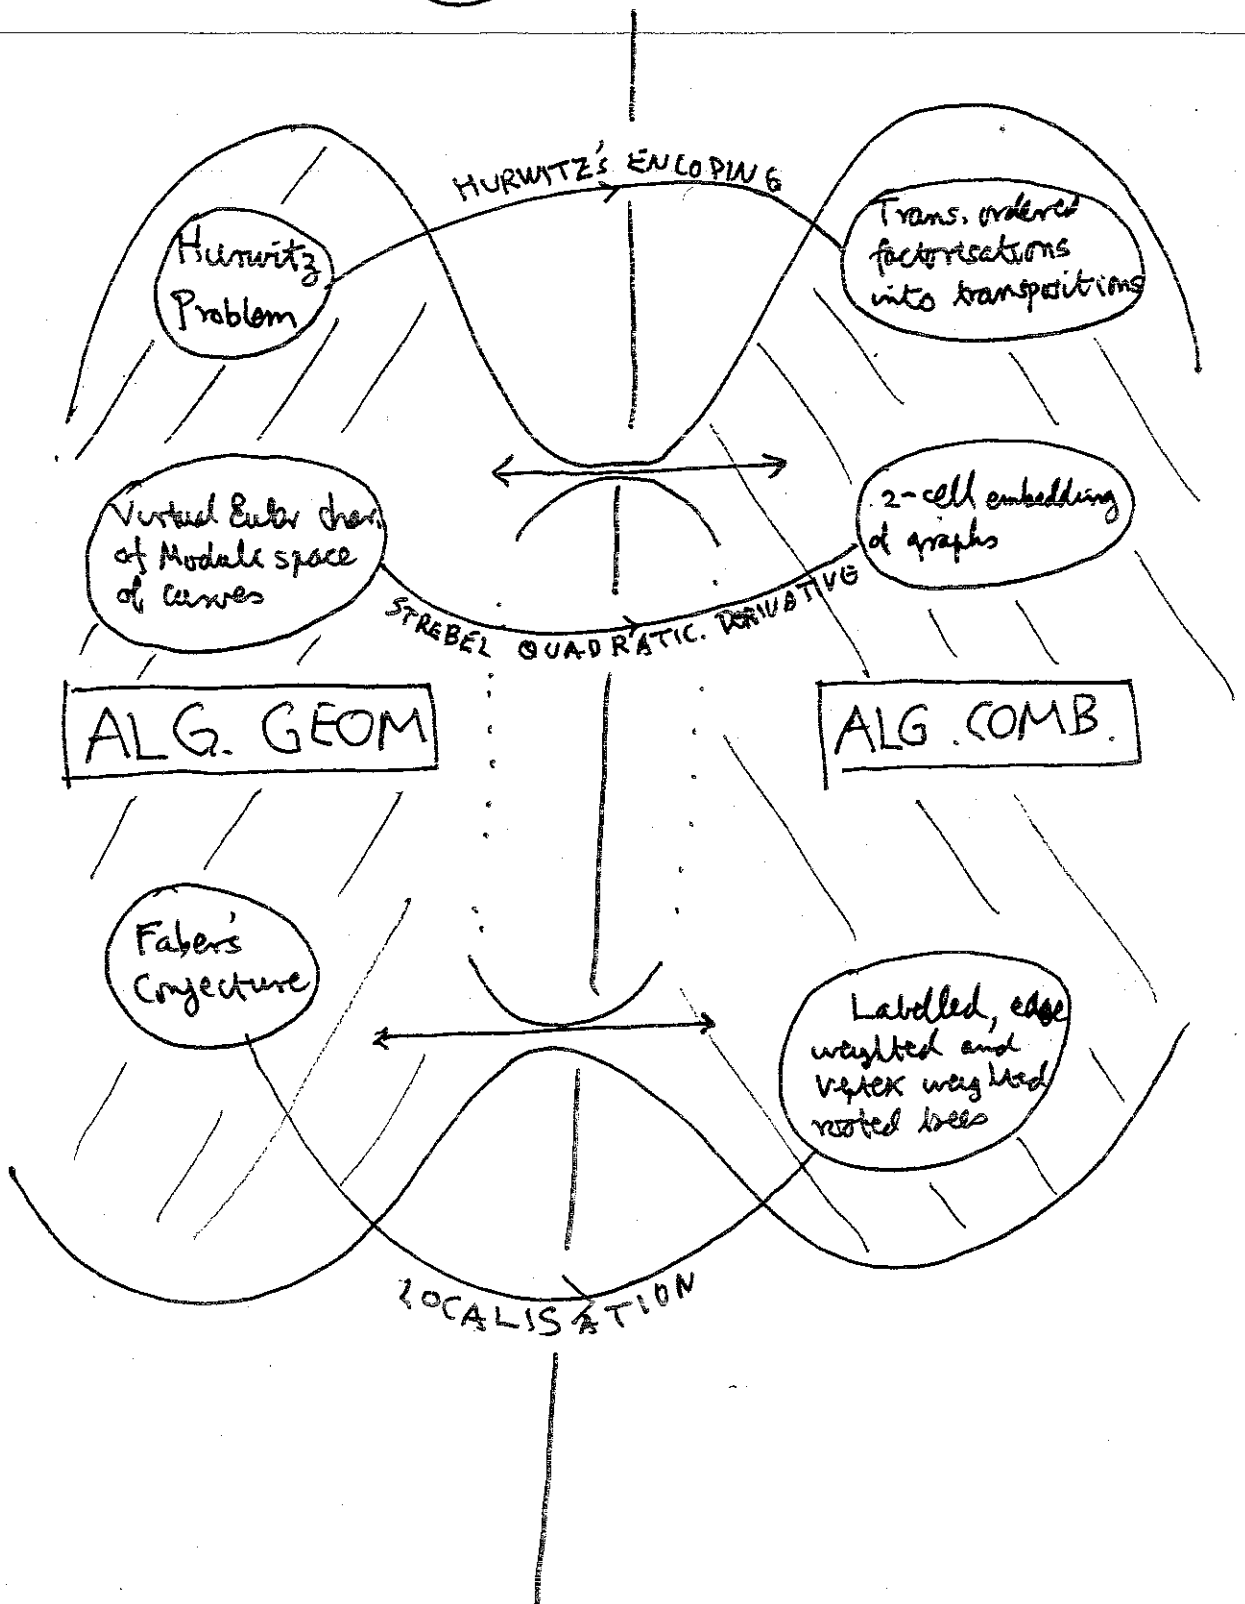 HURWITZ'S ENCODING
Hurwitz
Problem
Trans. ordered
factorisations
into transpositions
Virtual Euler char.
of Moduli space
of curves
2-cell embedding
of graphs
STREBEL QUADRATIC. DERIVATIVE
ALG. GEOM
ALG. COMB.
Faber's
Conjecture
Labelled, edge
weighted and
Vertex weighted
rooted trees
LOCALISATION